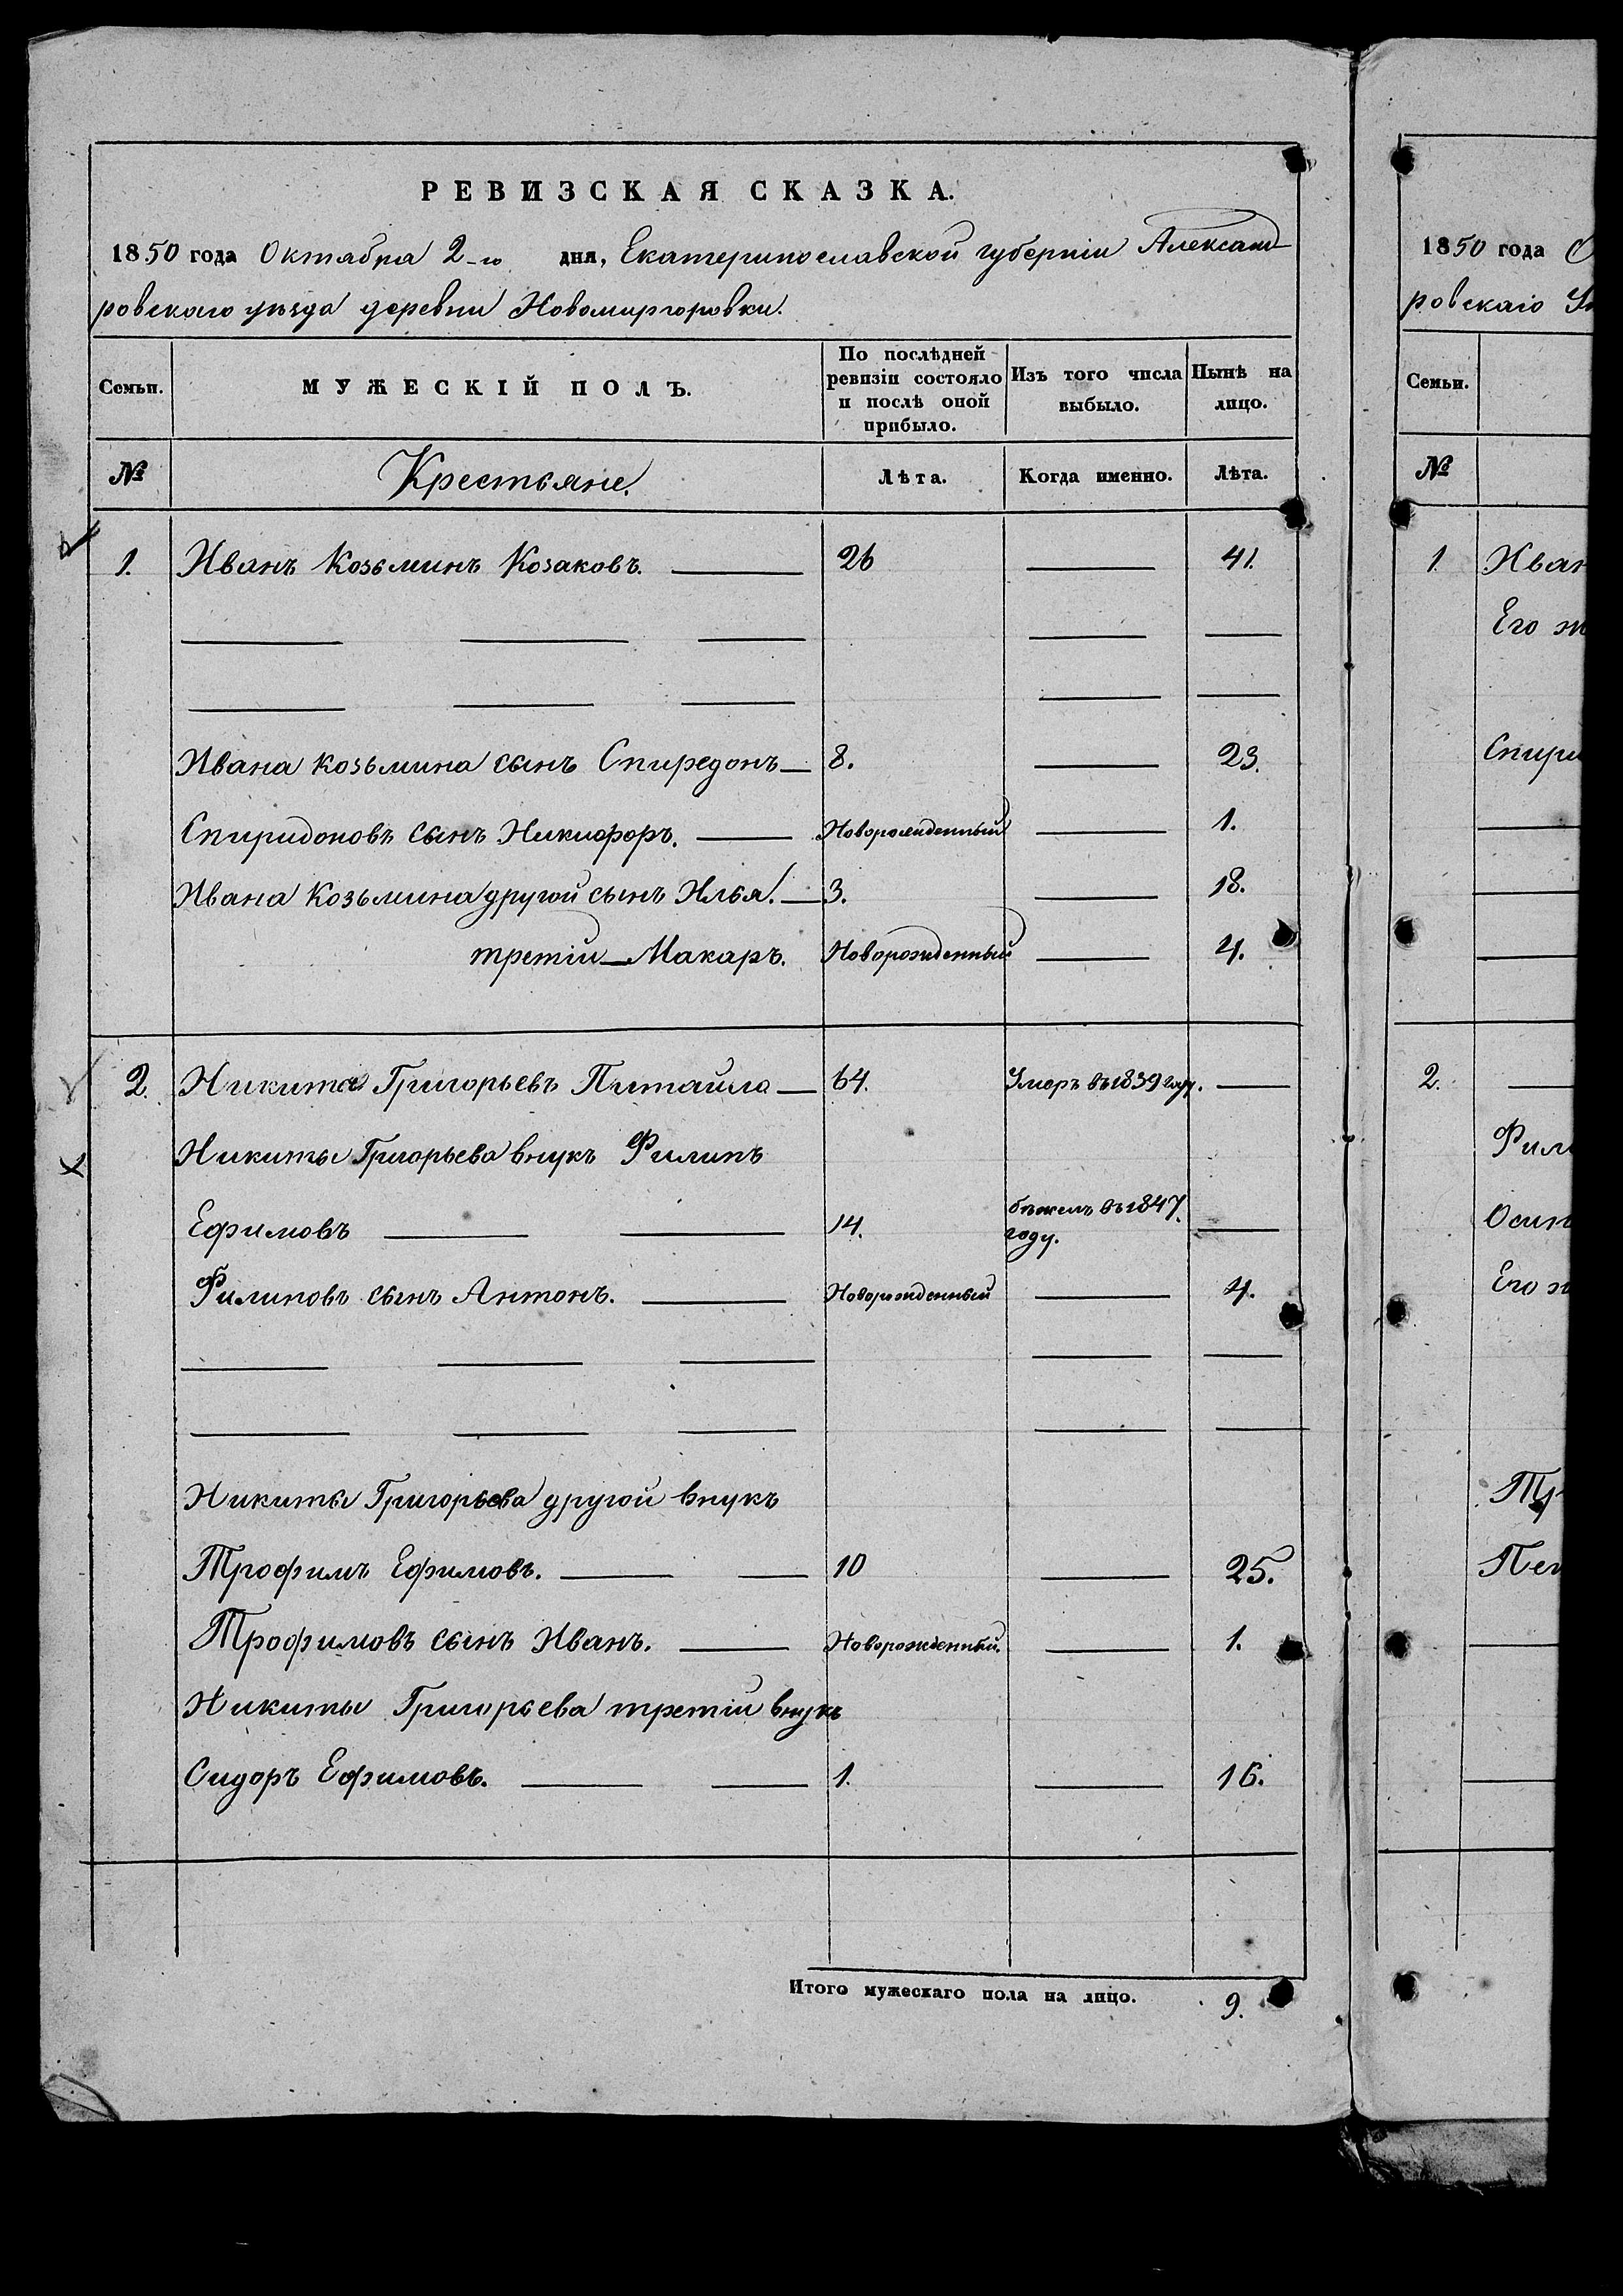 РЕВИЗСКАЯ СКАЗКА.
1850 года Октября 2-го дня, Екатеринославской губерніи Александ-
ровскаго уѣзда деревни Новомиргоровки.
Семьи. МУЖЕСКІЙ ПОЛЪ. По послѣдней ревизіи состояло и послѣ оной прибыло. Изъ того числа выбыло. Нынѣ на лицо.
№ Крестьяне. Лѣта. Когда именно. Лѣта.
1. Иванъ Козьминъ Козаковъ. 26 41.
Ивана Козьмина сынъ Спиредонъ 8. 23.
Спиридоновъ сынъ Никифоръ. Новорожденный 1.
Ивана Козьмина другой сынъ Илья. 3. 18.
третій Макаръ. Новорожденный 4.
2. Никита Григорьевъ 64. Умеръ въ 1839 году.
Никиты Григорьева внукъ Филипъ
Ефимовъ 14. бѣжалъ въ 1847 году.
Филиповъ сынъ Антонъ. Новорожденный 4.
Никиты Григорьева другой внукъ
Трофимъ Ефимовъ. 10 25.
Трофимовъ сынъ Иванъ. Новорожденный. 1.
Никиты Григорьева третій внукъ
Сидоръ Ефимовъ. 1. 16.
Итого мужескаго пола на лицо. 9.
1850 года
ровскаго
Семьи.
№
1 Иван
Его ж
Спири
2.
Фили
Осип
Его ж